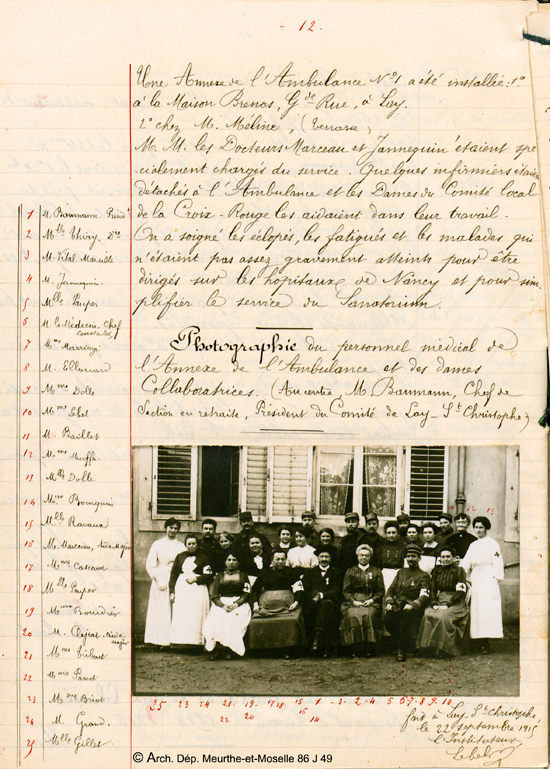 - 12.
Une Annexe de l'Ambulance N°1 a été installée: 1°
à la Maison Brenos, Gde Rue, à Lay.
2° chez M. Méline, (terrasse)
M. M. les Docteurs Marceau et Jannequin étaient spé-
cialement chargés du service. Quelques infirmiers étaient
détachés à l'Ambulance et les Dames du Comité local
de la Croix-Rouge les aidaient dans leur travail.
On a soigné les éclopés, les fatigués et les malades qui
n'étaient pas assez gravement atteints pour être
dirigés sur les hôpitaux de Nancy et pour sim-
plifier le service du Sanatorium.
Photographie du personnel médical de
l'Annexe de l'Ambulance et des dames
Collaboratrices. (Au centre, M. Baumann, Chef de
Section en retraite, Président du Comité de Lay-St Christophe)
1 M. Baumann
2 Mlle Thiry
3 M. Vital
4 M. Jannequin
5 Mlle
6 M. le Médecin-Chef
7 Mme
8 M.
9 Mme Dolle
10 Mme
11 M. Baillet
12 Mme Muffe
13 Mlle Dolle
14 Mme Bourguin
15 Mlle Ravaux
16 M. Marceau,
17 Mme
18 Mlle
19 Mme
20 M.
21 Mme
22 Mme
23 Mme
24 M. Grand,
25 Mlle Gillet
25 23 24 21 19 17 18 16 1 3 2 4 5 6 7 8 9 10
22 20 15 14
11 12 13
fait à Lay St Christophe,
le 22 septembre 1915
l'Instituteur
© Arch. Dép. Meurthe-et-Moselle 86 J 49